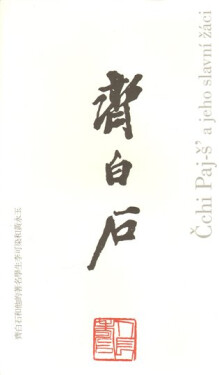 Čchi Paj-š' a jeho slavní žáci
齊白石
齊白石和他的著名學生李可染和黃永玉